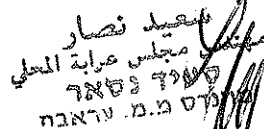 سعيد نصار
مهندس مجلس عرابة المحلي
סעיד נסאר
מהנדס מ.מ. עראבה